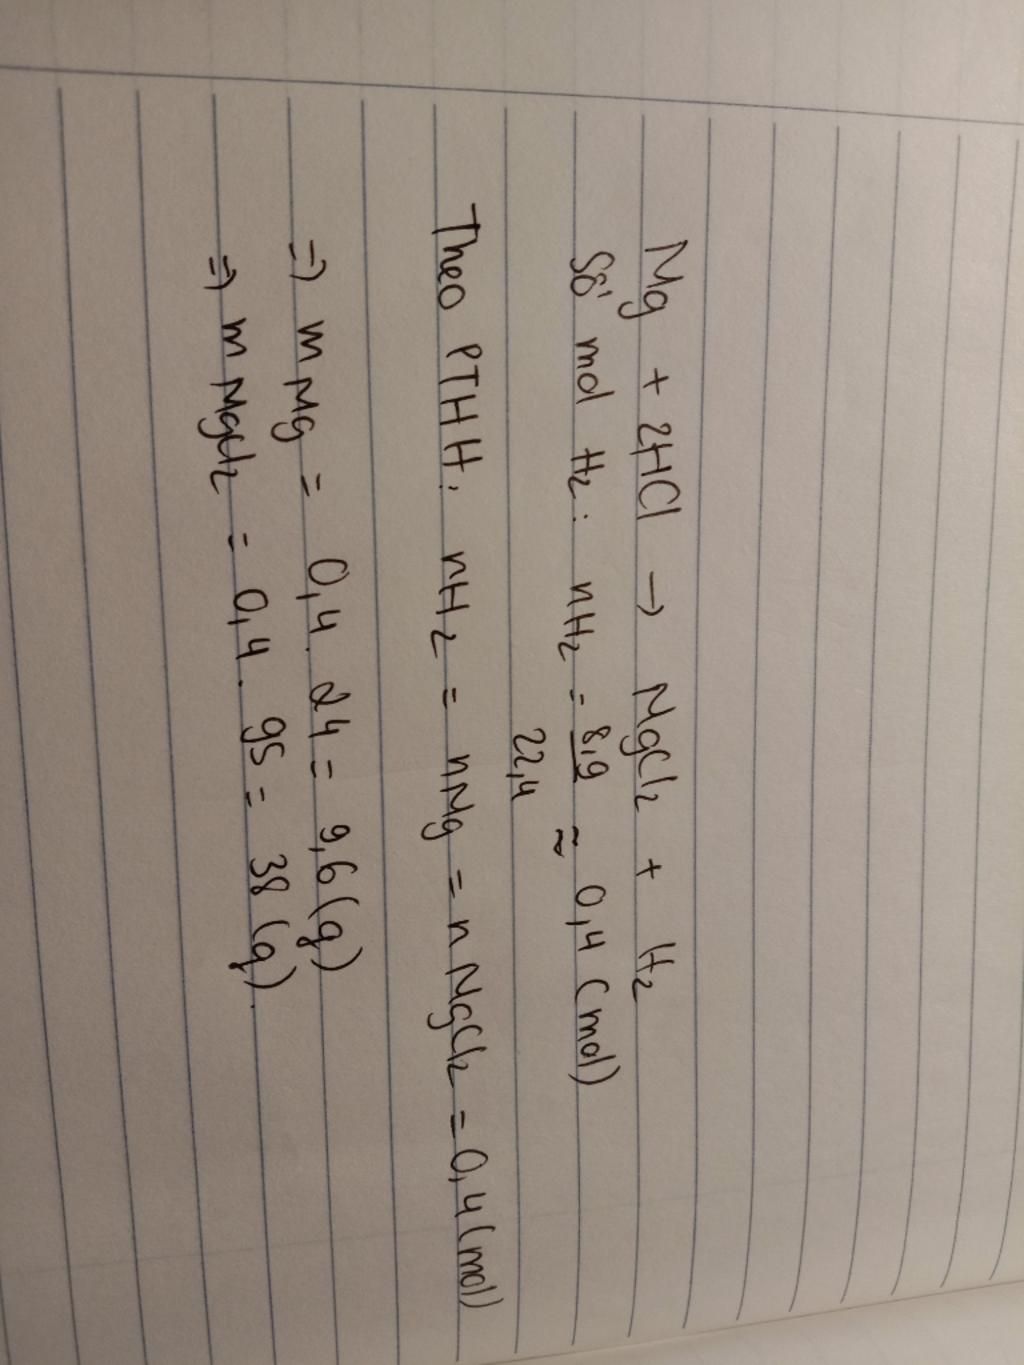 Mg + 2HCl → MgCl2 + H2
Số mol H2: nH2 = 8,9 ≈ 0,4 (mol)
22,4
Theo PTHH: nH2 = nMg = nMgCl2 = 0,4 (mol)
=> m Mg = 0,4. 24 = 9,6 (g)
=> m MgCl2 = 0,4. 95 = 38 (g).